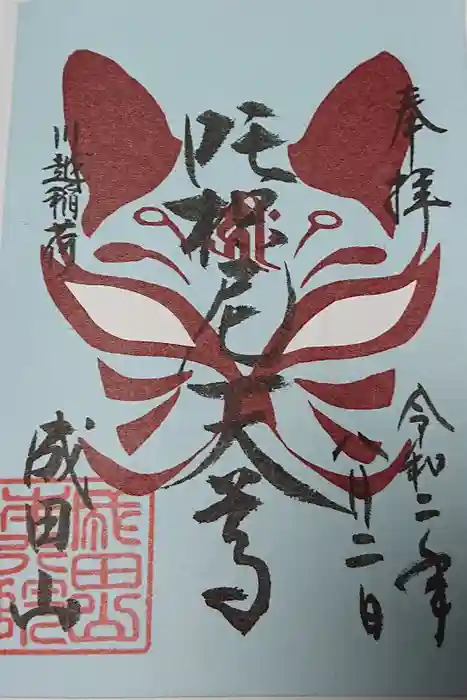 奉拝
令和二年
八月二日
吒枳尼天尊
川越稲荷
成田山